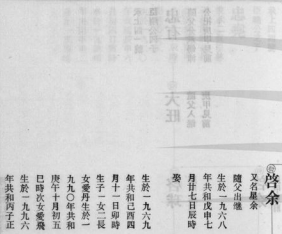 啓余
又名星余
隨父出继
生於一九六八
年共和戊申七
月廿七日辰時
娶
生於一九六九
年共和己酉四
月十一日卯時
生子一女二長
女愛丹生於一
九九〇年共和
庚午十月初五
巳時次女愛飛
生於一九九六
年共和丙子正